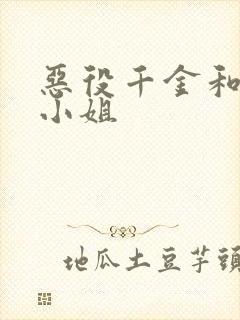 惡役千金和
小姐
地瓜土豆芋頭